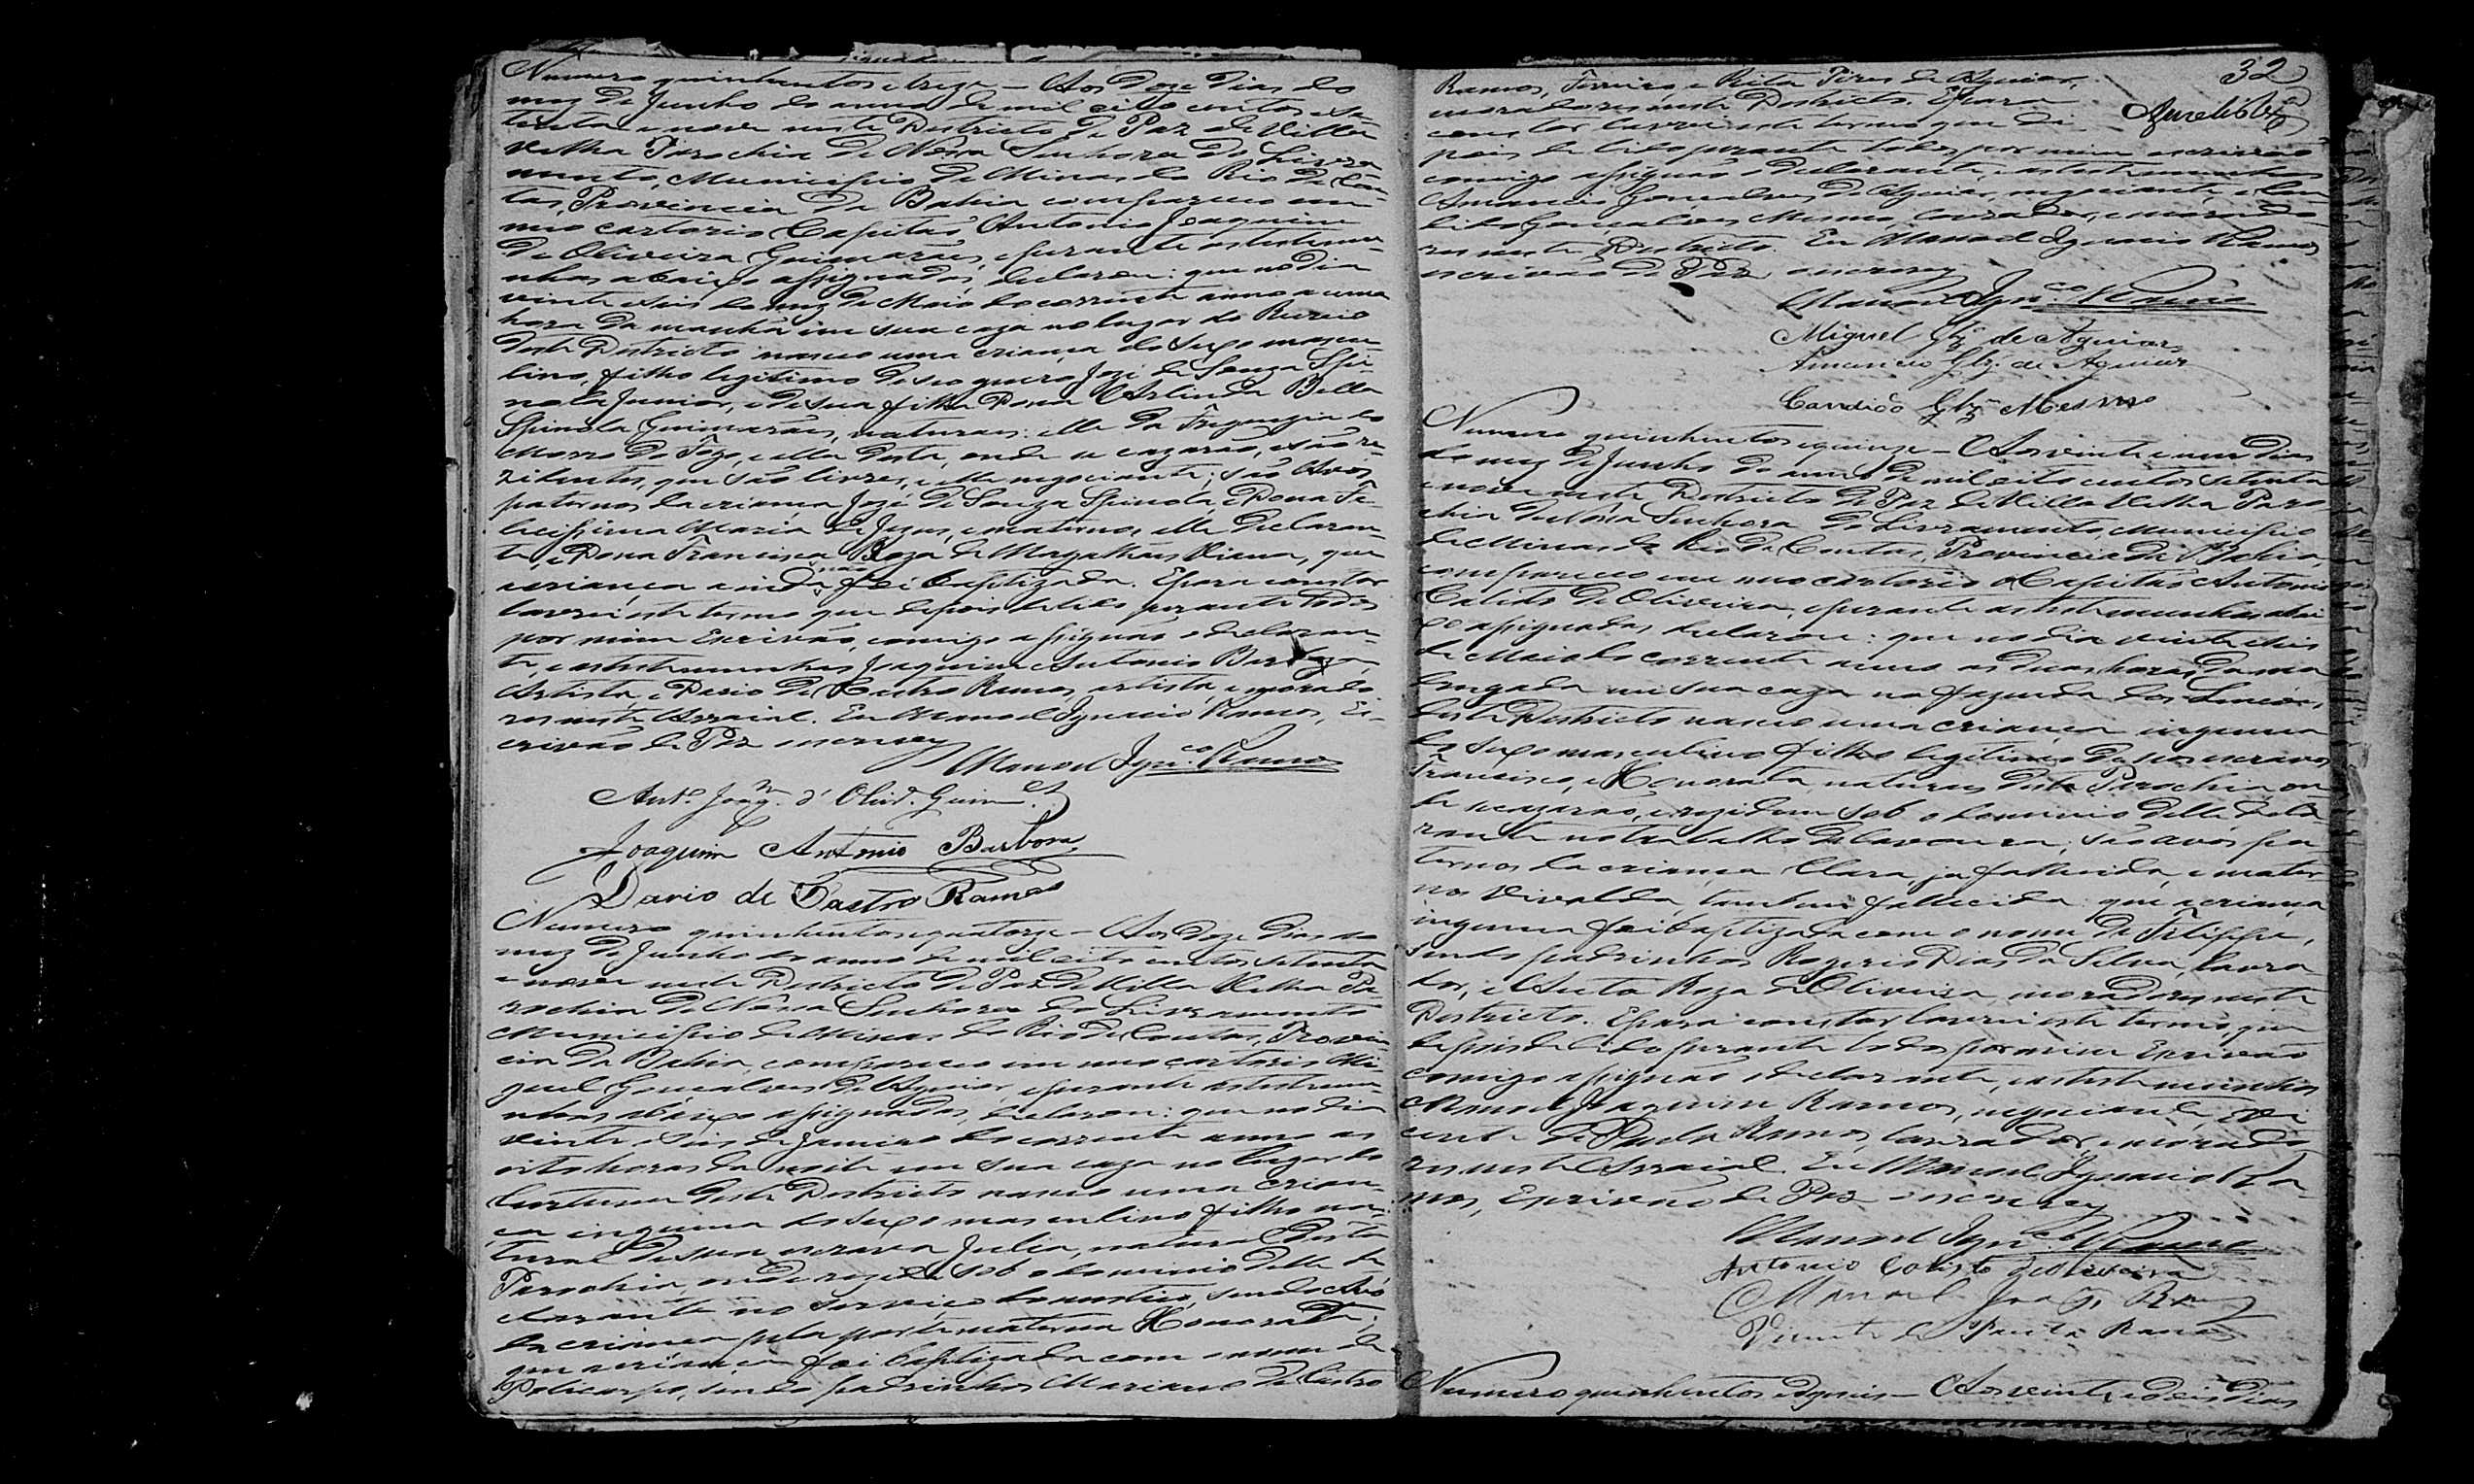 Numero quinhentos e treze – Aos doze dias do
mez de Junho do anno de mil oito centos e se-
tenta e nove neste Districto de Paz de Villa
Velha Parochia de Nossa Senhora do Livra
mento, Municipio de Minas do Rio de Con-
tas, Provincia da Bahia compareceo em
meo cartorio Capitão Antonio Joaquim
de Oliveira Guimarães, e perante as testemu-
nhas abaixo assignadas, declarou: que no dia
vinte e seis do mez de Maio do corrente anno a uma
hora da manhã em sua caza no lugar do
deste Districto nasceo uma criança do sexo mascu-
lino, filho legitimo de seo genro José de Souza Spi-
nola Junior, e de sua filha Dona Arlinda Bella
Spinola Guimarães, naturaes: elle da Freguezia do
Morro do Fogo, e ella desta, onde se cazarão, e são re-
zidentes, que são livres, e elle negociante; são Avós
paternos da criança José de Souza Spinola, e Dona Fe-
licissima Maria de Jezus, e maternos elle declaran-
te, e Dona Francisca Roza de Magalhães Viana, que
a criança ainda não foi baptizada. E para constar
lavrei este termo que depois de lido perante todos
por mim Escrivão, comigo assignão o declaran-
te, e as testemunhas Joaquim Antonio Barboza,
Artista, e Dario de Castro Ramos, artista, e morado-
res neste Arraial. Eu Manoel Ignacio Ramos, Es-
crivão de Paz escrevy
Manoel Ignco. Ramos
Anto. Joaqm. d' Olivra. Guimes.
Joaquim Antonio Barbosa
Dario de Castro Ramos
Numero quinhentos e quatorze – Aos doze dias do
mez de Junho do anno de mil oito centos setenta
e nove neste Districto de Paz de Villa Velha Pa-
rochia de Nossa Senhora do Livramento
Municipio de Minas do Rio de Contas, Provin
cia da Bahia, compareceo em meo cartorio Mi-
guel Gonçalves de Aguiar, e perante as testemu-
nhas abaixo assignadas, declarou: que no dia
vinte e seis de Janeiro do corrente anno as
oito horas da noite em sua caza no lugar do
deste Districto nasceo uma crian-
ça ingenua do sexo masculino filho na-
tural de sua escrava Julia, natural desta
Parochia, onde rezide sob o dominio delle de
clarante no serviço domestico, sendo Avó
da criança pela parte materna Honorata;
que a criança foi baptizada com o nome de
Policarpo, sendo padrinhos Mariano de Castro
32
Ramos, Ferreiro e Rita Pires de Aguiar,
moradores neste Districto. E para
constar lavrei este termo que de-
pois de lido perante todos por mim escrivão
comigo assignão o declarante, e as testemunhas
Amancio Gonçalves de Aguiar, negociante, e Can-
dido Gonçalves Mesmo, lavrador, e morado-
res neste Districto. Eu Manoel Ignacio Ramos
escrivão de Paz escrevy
Manoel Ignco. Ramos
Miguel Glz de Aguiar
Amancio Glz. de Aguiar
Candido Glz
Numero quinhentos e quinze – Aos vinte e um dias
do mez de Junho do anno de mil oito centos setenta
e nove neste Districto de Paz de Villa Velha Paro
chia de Nossa Senhora do Livramento, Municipio
de Minas do Rio de Contas, Provincia da Bahia,
compareceo em meo cartorio o Capitão Antonio
Calisto de Oliveira, e perante as testemunhas abai
xo assignadas declarou: que no dia vinte e seis
de Maio do corrente anno as duas horas da ma
drugada em sua caza na fazenda dos
deste Districto nasceo uma criança ingenua
do sexo masculino filho legitimo de seos escravos
Francisco, e Honorata, naturaes desta Parochia, on-
de se cazarão, e rezidem sob o dominio delle decla-
rante no trabalho de lavoura; são avós pa
ternos da criança Clara, ja fallecida, e mater-
nos Vivalda, tambem fallecida: que a criança
ingenua foi baptizada com o nome de Filippe,
sendo padrinhos Rogerio Dias da Silva, lavra-
dor, e Roza de Oliveira, moradores neste
Districto. E para constar lavrei este termo, que
depois de lido perante todos por mim Escrivão
comigo assignão o declarante, e as testemunhas
Manoel Joaquim Ramos, negociante, e Vi
cente de Paula Ramos, lavrador, e morado-
res neste Arraial. Eu Manoel Ignacio Ra-
mos, Escrivão de Paz escrevy
Manoel Ignco. Ramos
Antonio Calisto de Oliveira
Manoel Joaqm. Ramos
Vicente de Paula Ramos
Numero quinhentos e dezeseis – Aos vinte e seis dias